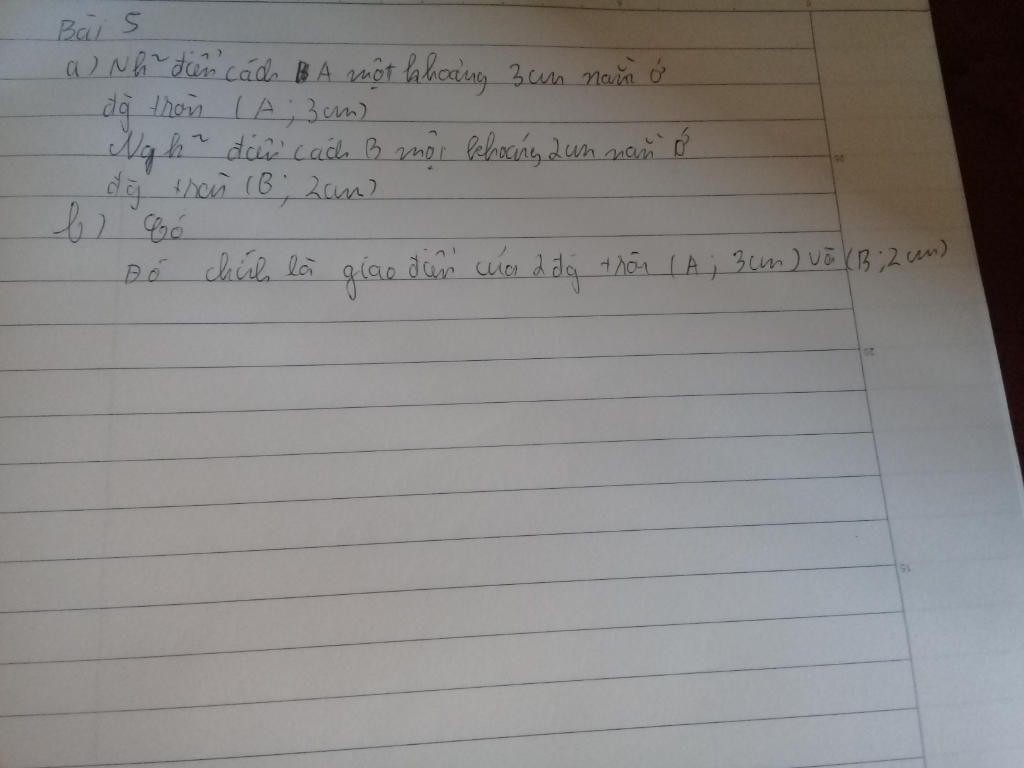 Bài 5
a) Nh~ điểm cách A một khoảng 3cm nằm ở
đg tròn (A; 3cm)
Ngh~ điểm cách B một khoảng 2cm nằm ở
đg tròn (B; 2cm)
b) Có
Đó chính là giao điểm của 2 đg tròn (A; 3cm) và (B; 2cm)